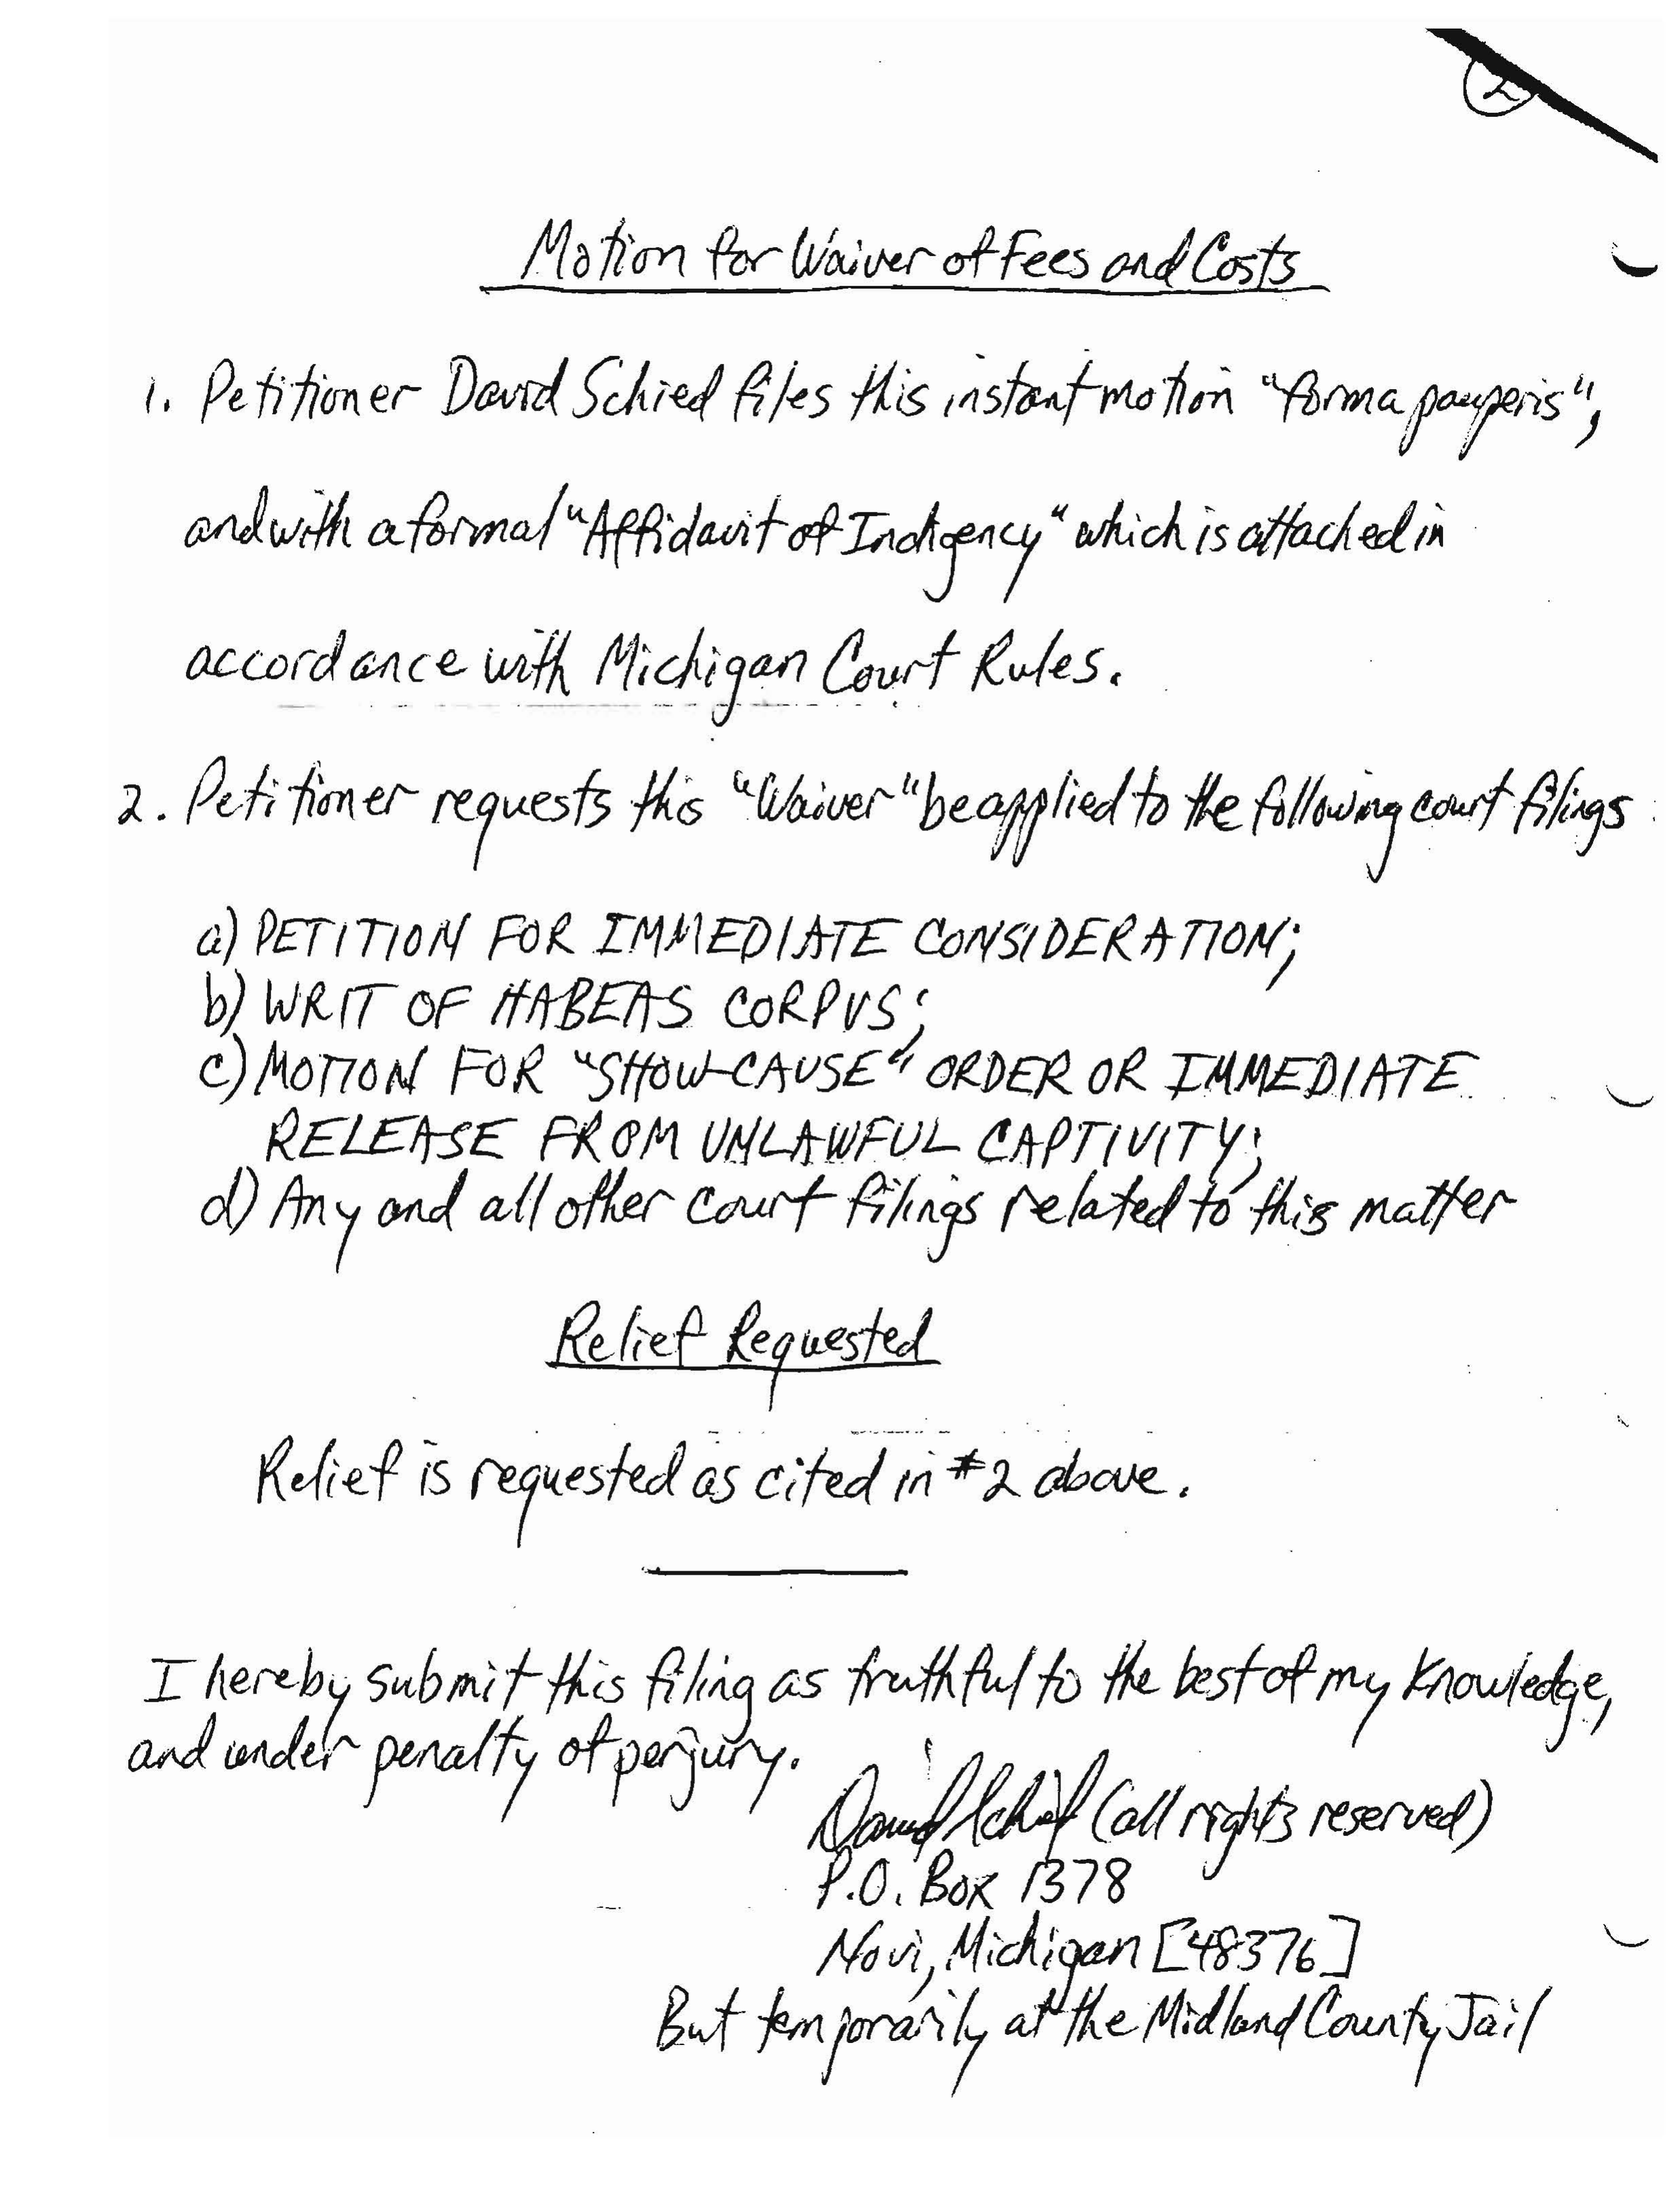 2
Motion for Waiver of Fees and Costs
1. Petitioner David Schied files this instant motion "forma pauperis",
and with a formal "Affidavit of Indigency" which is attached in
accordance with Michigan Court Rules.
2. Petitioner requests this "Waiver" be applied to the following court filings:
a) PETITION FOR IMMEDIATE CONSIDERATION;
b) WRIT OF HABEAS CORPUS;
c) MOTION FOR "SHOW-CAUSE" ORDER OR IMMEDIATE
RELEASE FROM UNLAWFUL CAPTIVITY;
d) Any and all other court filings related to this matter
Relief Requested
Relief is requested as cited in #2 above.
I hereby submit this filing as truthful to the best of my knowledge,
and under penalty of perjury.
David Schied (all rights reserved)
P.O. Box 1378
Novi, Michigan [48376]
But temporarily at the Midland County Jail